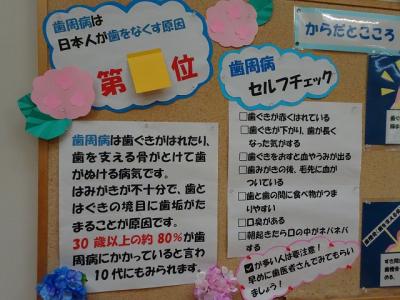 歯周病は
日本人が歯をなくす原因
第
位
歯周病は歯ぐきがはれたり、
歯を支える骨がとけて歯
がぬける病気です。
はみがきが不十分で、歯と
はぐきの境目に歯垢がた
まることが原因です。
30歳以上の約80%が歯
周病にかかっていると言わ
れ、10代にもみられます。
歯周病
セルフチェック
□歯ぐきが赤くはれている
□歯ぐきが下がり、歯が長く
なった気がする
□歯ぐきをおすと血やうみが出る
□歯みがきの後、毛先に血が
ついている
□歯と歯の間に食べ物がつま
りやすい
□口臭がある
□朝起きたら口の中がネバネバ
する
✓が多い人は要注意!
早めに歯医者さんでみてもらい
ましょう!
からだとこころ